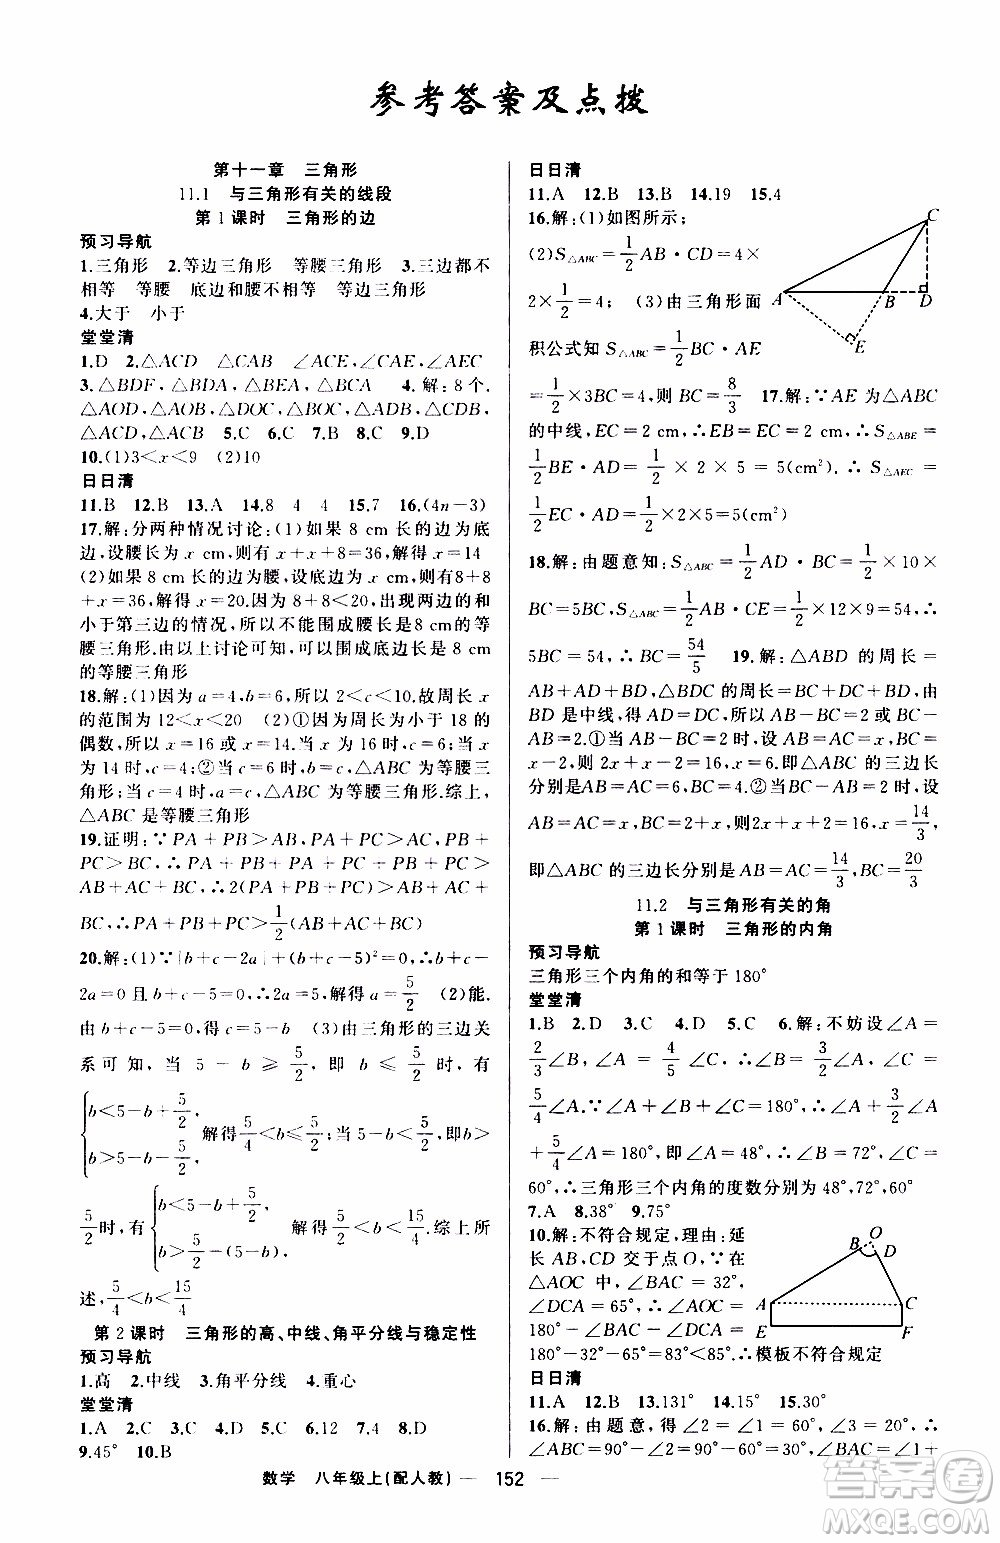 参考答案及点拨
第十一章　三角形
11.1　与三角形有关的线段
第1课时　三角形的边
预习导航
1.三角形　2.等边三角形　等腰三角形　3.三边都不
相等　等腰　底边和腰不相等　等边三角形
4.大于　小于
堂堂清
1.D　2.△ACD　△CAB　∠ACE,∠CAE,∠AEC
3.△BDF,△BDA,△BEA,△BCA　4.解:8个.
△AOD,△AOB,△DOC,△BOC,△ADB,△CDB,
△ACD,△ACB　5.C　6.C　7.B　8.C　9.D
10.(1)3<x<9　(2)10
日日清
11.B　12.B　13.A　14.8　4　4　15.7　16.(4n-3)
17.解:分两种情况讨论:(1)如果 8 cm 长的边为底
边,设腰长为 x cm,则有 x+x+8=36,解得 x=14
(2)如果 8 cm 长的边为腰,设底边为 x cm,则有 8+8
+x=36,解得 x=20.因为 8+8<20,出现两边的和
小于第三边的情况,所以不能围成腰长是 8 cm 的等
腰三角形.由以上讨论可知,可以围成底边长是 8 cm
的等腰三角形
18.解:(1)因为 a=4,b=6,所以 2<c<10.故周长 x
的范围为 12<x<20　(2)①因为周长为小于 18 的
偶数,所以 x=16 或 x=14.当 x=16 时,c=6;当 x
=14 时,c=4;②当 c=6 时,b=c,△ABC 为等腰三
角形;当 c=4 时,a=c,△ABC 为等腰三角形.综上,
△ABC 是等腰三角形
19.证明:∵PA+PB>AB,PA+PC>AC,PB+
PC>BC,∴PA+PB+PA+PC+PB+PC>
AB+AC+BC,∴2(PA+PB+PC)>AB+BC+
AC.∴PA+PB+PC>1/2(AB+BC+AC)
20.解:(1)∵|b+c-2a|+(b+c-5)²=0,∴b+c-
2a=0 且 b+c-5=0,∴2a=5,解得 a=5/2　(2)能.
由 b+c-5=0,得 c=5-b　(3)由三角形的三边关
系可知,当 5-b≥5/2,即 b≤5/2时,有
{b<5-b+5/2, b>5-b-5/2,解得5/4<b≤5/2;当 5-b<5/2,即 b>
5/2时,有{b<5-b+5/2, b>5/2-(5-b),解得5/4<b<15/4.综上所
述,5/4<b<15/4
第2课时　三角形的高、中线、角平分线与稳定性
预习导航
1.高　2.中线　3.角平分线　4.重心
堂堂清
1.A　2.C　3.C　4.B　5.C　6.D　7.B　8.D
9.45°　10.B
日日清
11.A　12.B　13.B　14.19　15.4
16.解:(1)如图所示;
(2)S△ABC=1/2AB·CD=4×
2×1/2=4;　(3)由三角形面
积公式知 S△ABC=1/2BC·AE
=1/2×3BC=4,则 BC=8/3　17.解:∵AE 为△ABC
的中线,EC=2 cm,∴EB=EC=2 cm,∴S△ABE=
1/2BE·AD=1/2×2×5=5(cm²).∴S△AEC=
1/2EC·AD=1/2×2×5=5(cm²)
18.解:由题意知:S△ABC=1/2AD·BC=1/2×10×
BC=5BC,S△ABC=1/2AB·CE=1/2×12×9=54,∴
5BC=54,∴BC=54/5　19.解:△ABD 的周长=
AB+AD+BD,△BDC 的周长=BC+BD+CD,由
BD 是中线,得 AD=DC,所以 AB-BC=2或 BC-
AB=2.①当 AB-BC=2 时,设 AB=AC=x,BC=
x-2,则 2x+x-2=16,x=6,所以△ABC 的三边长
分别为 AB=AC=6,BC=4.②当 BC-AB=2 时,设
AB=AC=x,BC=x+2,则 2x+x+2=16,x=14/3,
即△ABC 的三边长分别是 AB=AC=14/3,BC=20/3
11.2　与三角形有关的角
第1课时　三角形的内角
预习导航
三角形三个内角的和等于 180°
堂堂清
1.B　2.D　3.C　4.D　5.C　6.解:不妨设∠A=
2/3∠B,∠A=4/5∠C,∴∠B=3/2∠A,∠C=
5/4∠A.∵∠A+∠B+∠C=180°,∴∠A+3/2∠A
+5/4∠A=180°,∴∠A=48°,∴∠B=72°,∠C=
60°,∴三角形三个内角的度数分别为 48°,72°,60°
7.A　8.38°　9.75°
10.解:不符合规定,理由:延
长 AB,CD 交于点 O,∵在
△AOC 中,∠BAC=32°,
∠DCA=65°,∴∠AOC=
180°-∠BAC-∠DCA=
180°-32°-65°=83°<85°.∴模板不符合规定
日日清
11.A　12.B　13.131°　14.15°　15.30°
16.解:由题意,得∠2=∠1=60°,∠ABE=15°,∴
∠ABC=∠2-∠ABE=60°-15°=45°,∠BAC=∠1+
C
A
B
D
E
O
B
D
A
C
E
F
数学　八年级上(配人教)　— 152 —
答案圈
MXQE.COM